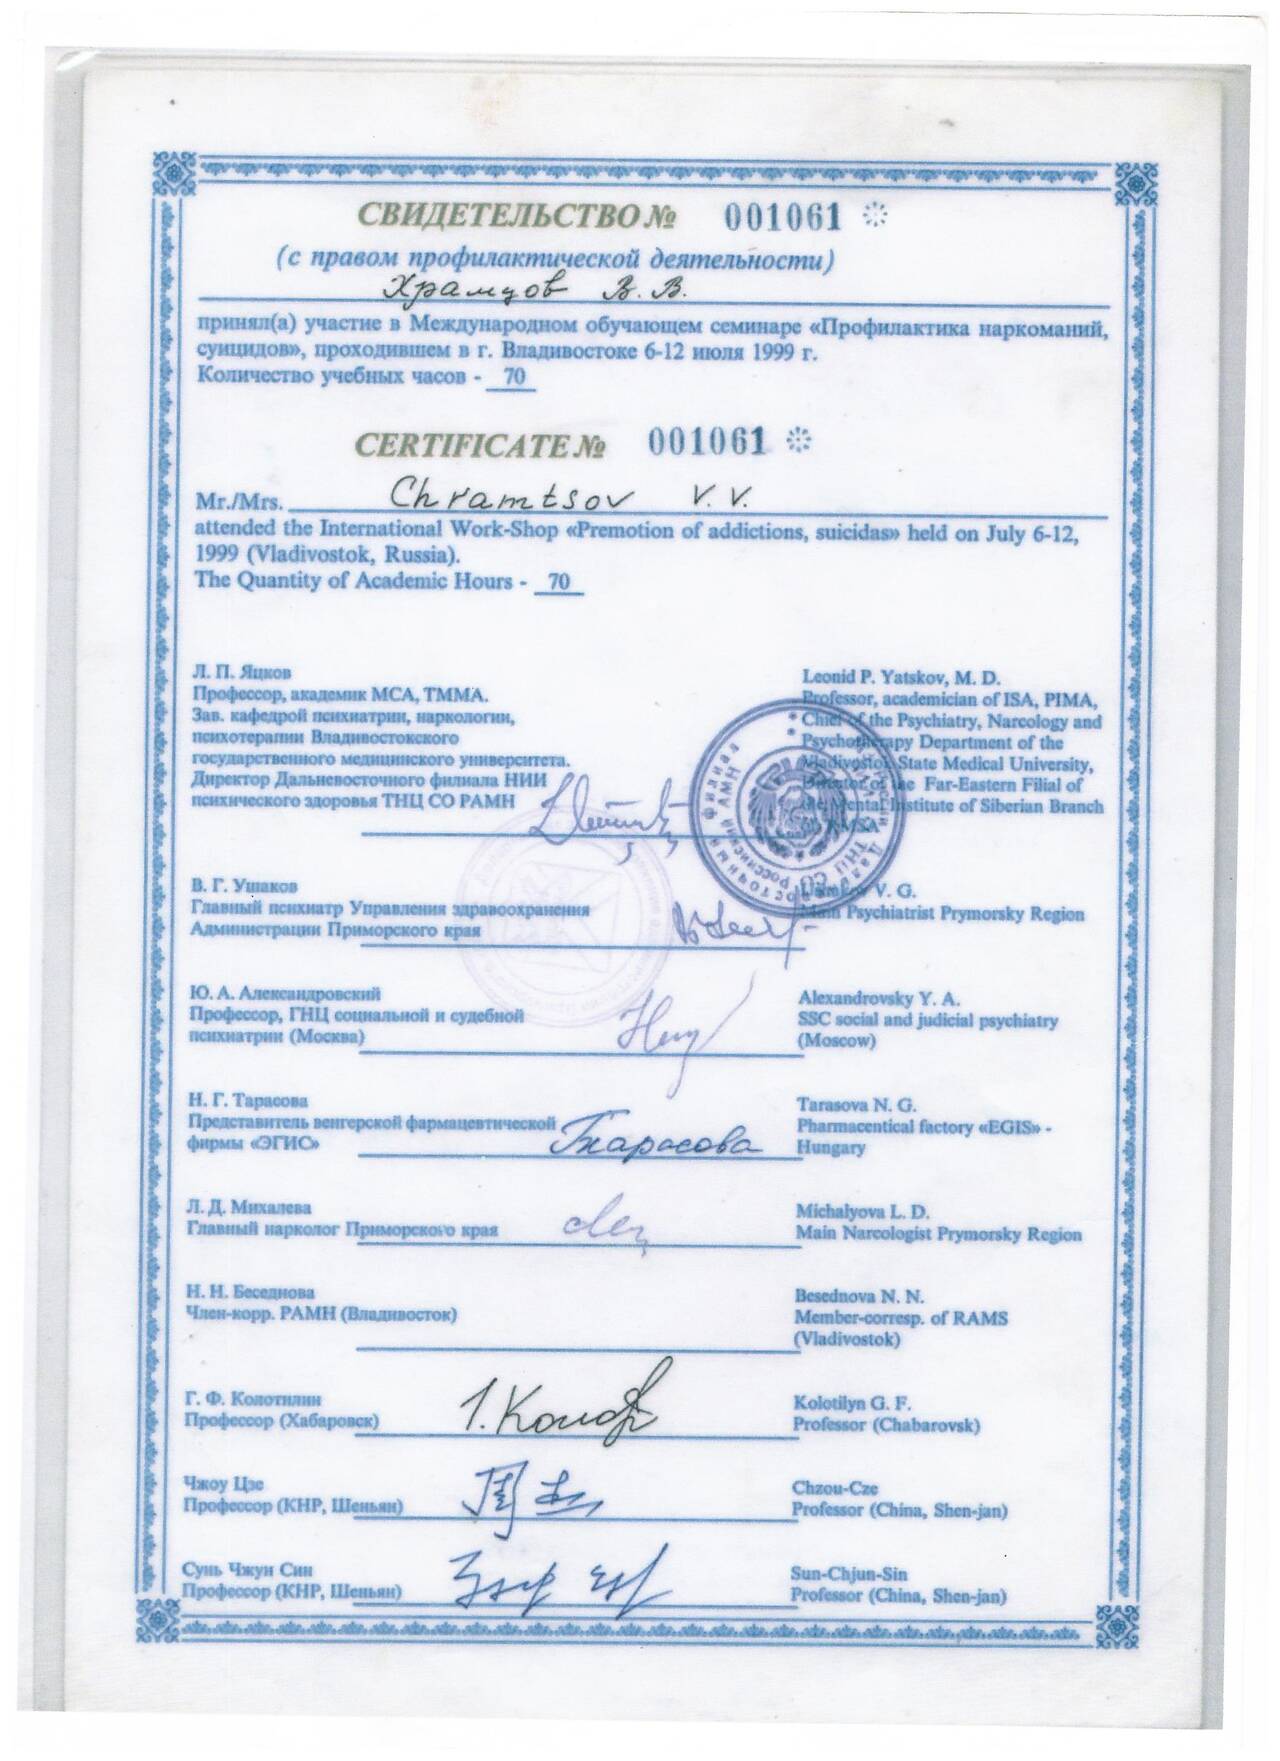 СВИДЕТЕЛЬСТВО № 001061
(с правом профилактической деятельности)
Храмцов В. В.
принял(а) участие в Международном обучающем семинаре «Профилактика наркоманий,
суицидов», проходившем в г. Владивостоке 6-12 июля 1999 г.
Количество учебных часов - 70
CERTIFICATE № 001061
Mr./Mrs. Chramtsov V. V.
attended the International Work-Shop «Premotion of addictions, suicidas» held on July 6-12,
1999 (Vladivostok, Russia).
The Quantity of Academic Hours - 70
Л. П. Яцков
Профессор, академик МСА, ТММА.
Зав. кафедрой психиатрии, наркологии,
психотерапии Владивостокского
государственного медицинского университета.
Директор Дальневосточного филиала НИИ
психического здоровья ТНЦ СО РАМН
Leonid P. Yatskov, M. D.
Professor, academician of ISA, PIMA,
Chief of the Psychiatry, Narcology and
Psychotherapy Department of the
Vladivostok State Medical University,
Director of the Far-Eastern Filial of
the Mental Institute of Siberian Branch
В. Г. Ушаков
Главный психиатр Управления здравоохранения
Администрации Приморского края
V. G.
Main Psychiatrist Prymorsky Region
Ю. А. Александровский
Профессор, ГНЦ социальной и судебной
психиатрии (Москва)
Alexandrovsky Y. A.
SSC social and judicial psychiatry
(Moscow)
Н. Г. Тарасова
Представитель венгерской фармацевтической
фирмы «ЭГИС»
Тарасова
Tarasova N. G.
Pharmacentical factory «EGIS» -
Hungary
Л. Д. Михалева
Главный нарколог Приморского края
Michalyova L. D.
Main Narcologist Prymorsky Region
Н. Н. Беседнова
Член-корр. РАМН (Владивосток)
Besednova N. N.
Member-corresp. of RAMS
(Vladivostok)
Г. Ф. Колотилин
Профессор (Хабаровск)
Kolotilyn G. F.
Professor (Chabarovsk)
Чжоу Цзе
Профессор (КНР, Шеньян)
Chzou-Cze
Professor (China, Shen-jan)
Сунь Чжун Син
Профессор (КНР, Шеньян)
Sun-Chjun-Sin
Professor (China, Shen-jan)